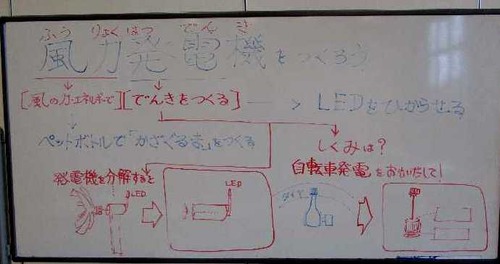 ふうりょくはつでんき
風力発電機をつくろう
[風の力・エネルギーで][でんきをつくる] → LEDをひからせる
ペットボトルで「かざぐるま」をつくる
しくみは?
発電機を分解すると
自転車発電をおもいだして!
LED
LED